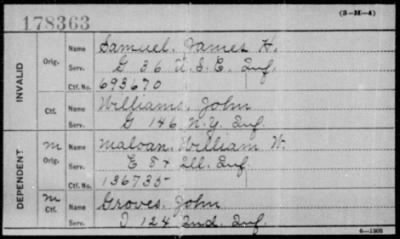 178363
(3-M-4)
INVALID
Orig.
Name Samuel, James H.
Serv. G 36 U.S.C. Inf.
Ctf. No. 693670
Ctf.
Name Williams, John
Serv. G 146 N.Y. Inf.
DEPENDENT
M Orig.
Name Maloan, William W.
Serv. E 54 Ill. Inf.
Ctf. No. 136735
M Ctf.
Name Groves, John
Serv. I 124 Ind. Inf.
6-1305